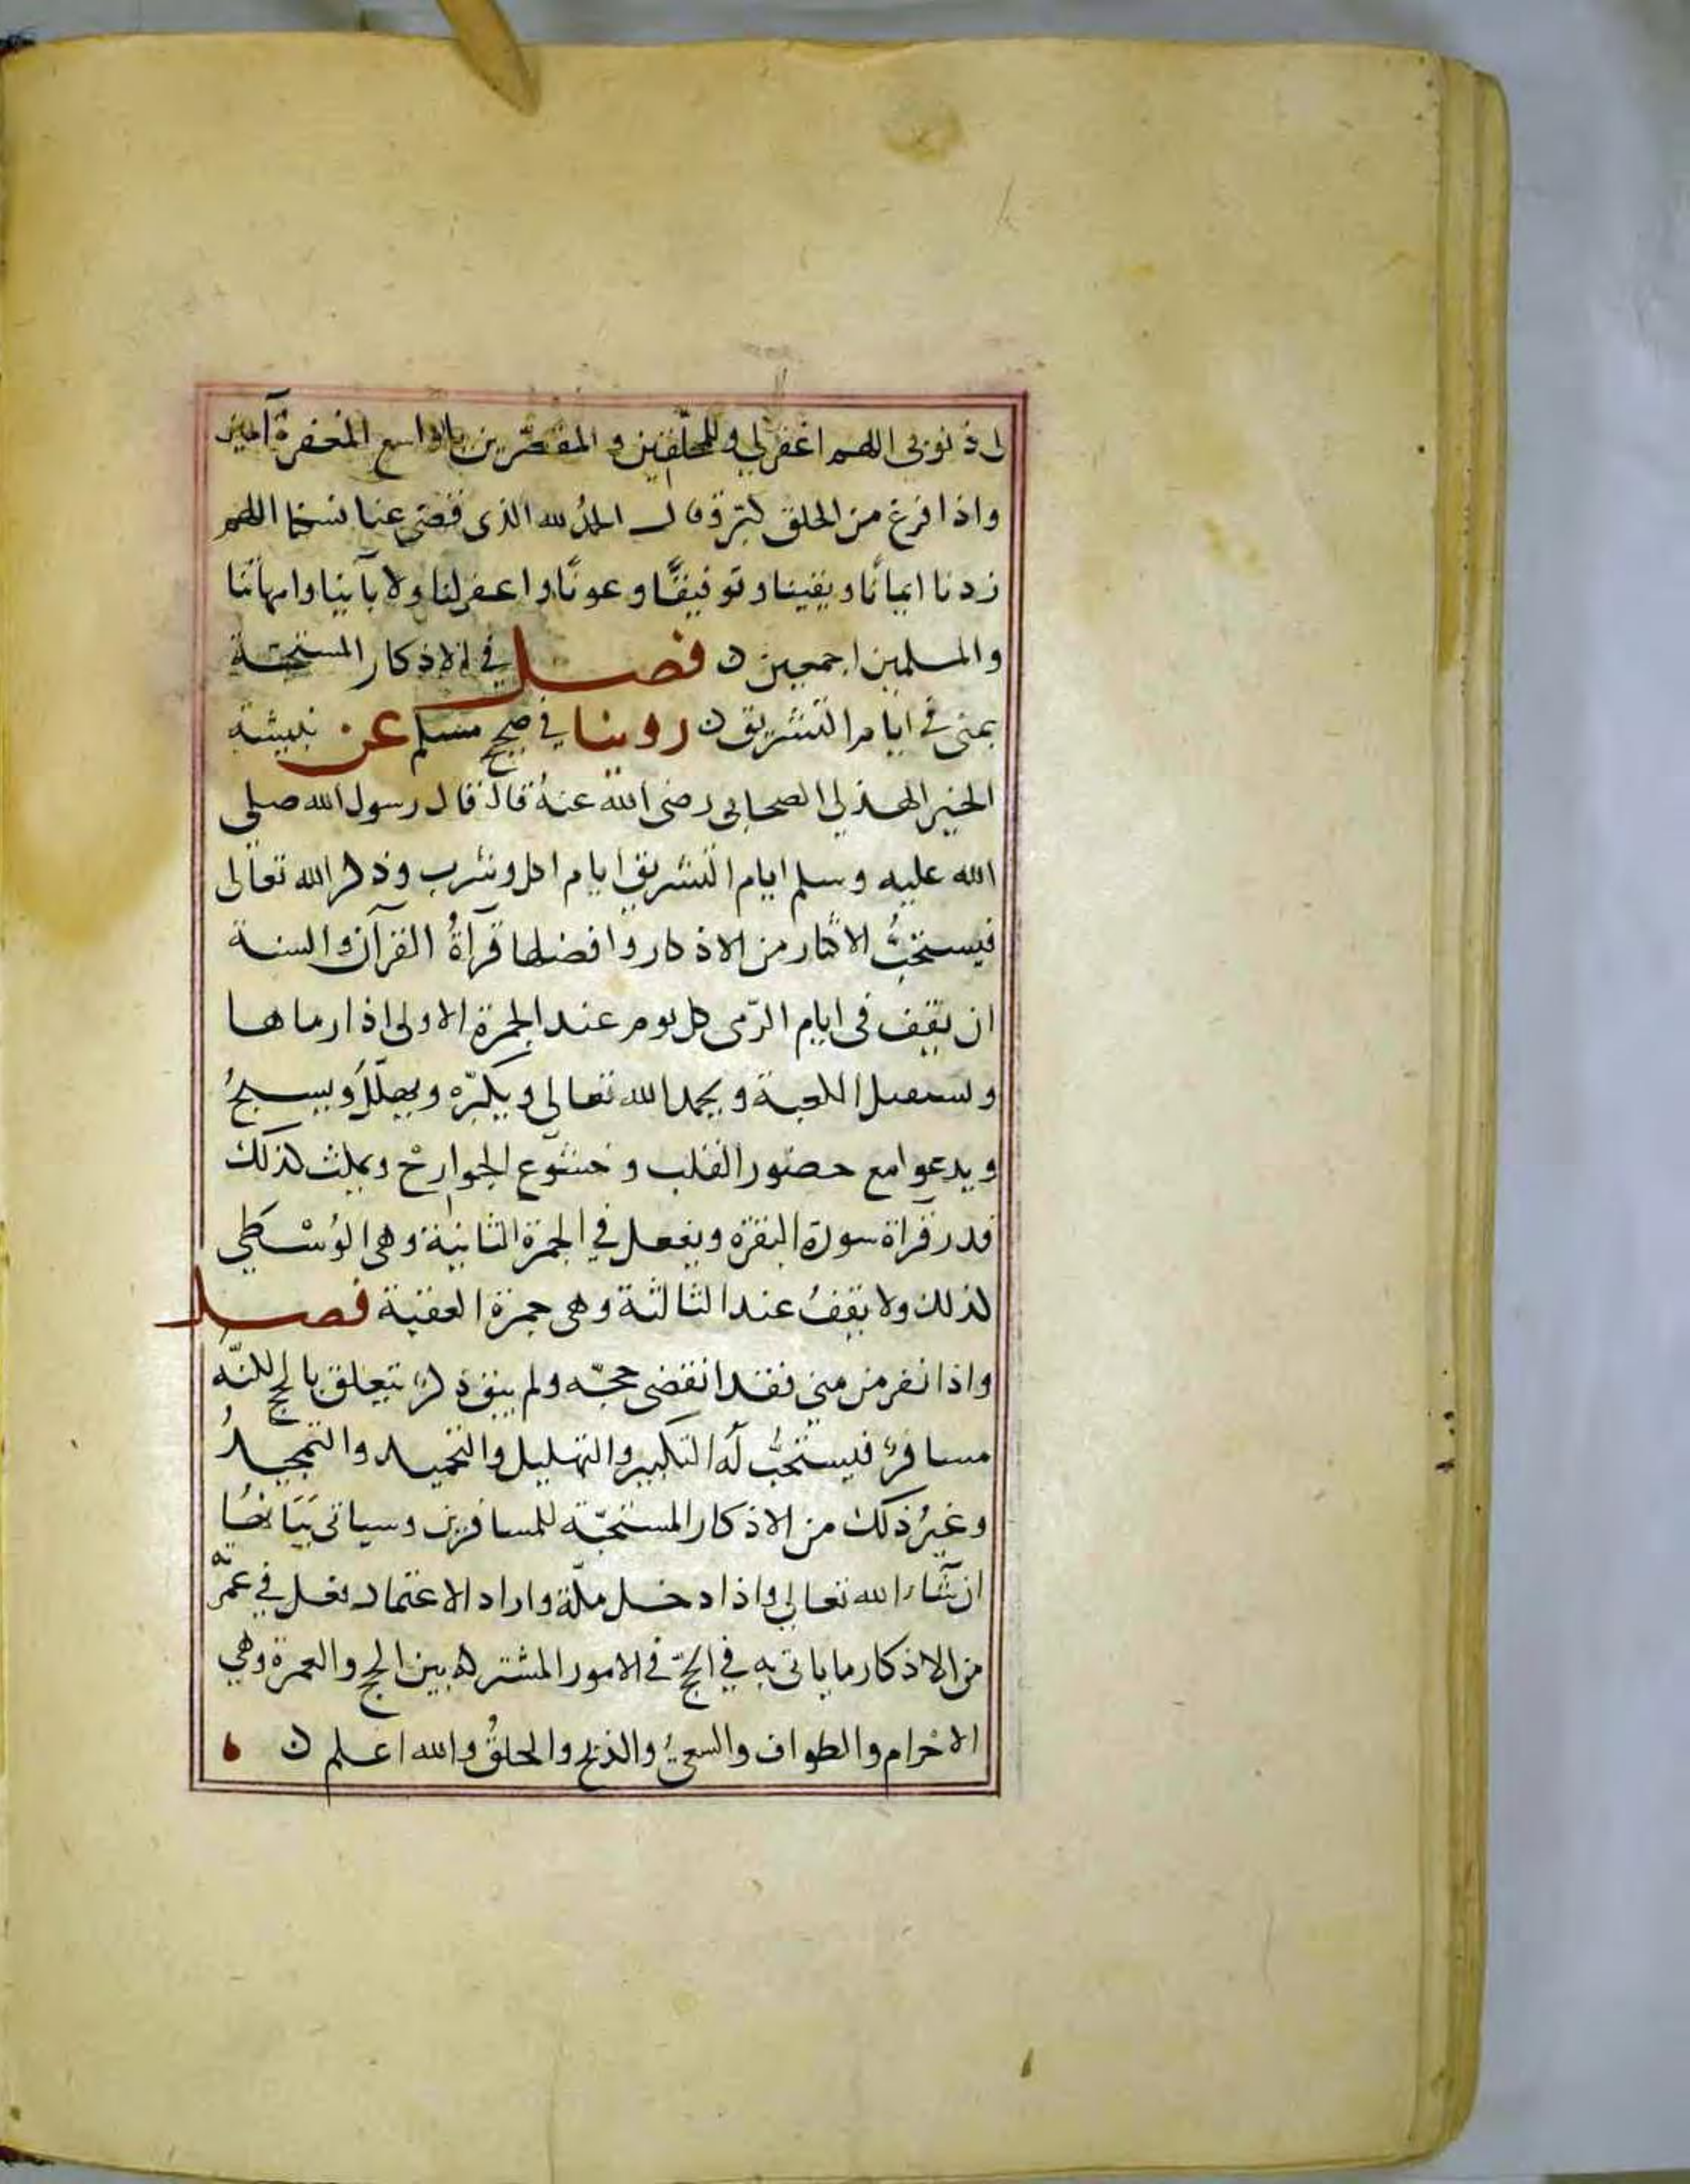 لى ذنوبى اللهم اغفرلي وللمحلّقين والمقصّرين يا واسع المغفرة آمين
واذا فرغ من الحلق كبّر وقال الحمدُ لله الذى قضى عنا نسكنا اللهم
زدنا ايمانًا ويقينا وتوفيقًا وعونًا واغفرلنا ولابآئنا وامهاتنا
والمسلمين اجمعين ن فصل في الاذكار المستحبّة
بمنى في ايام التشريق ن روينا في صحيح مسلم عن نبيشة
الخير الهذلي الصحابى رضى الله عنهُ قال قال رسول الله صلى
الله عليه وسلم ايام التشريق ايام اكل وشرب وذكر الله تعالى
فيستحبُّ الاكثار من الاذكار وافضلها قرآةُ القرآن والسنة
ان يقف فى ايام الرّمى كل يوم عند الجمرة الاولى اذا رماها
ويستقبل الكعبة ويحمد الله تعالى ويكبّره ويهلّلُ ويسبحُ
ويدعوا مع حضور القلب وخشوع الجوارح ويمكث كذلك
قدر قرآة سورة البقرة ويفعل في الجمرة الثانية وهى الوُسْطي
كذلك ولا يقفُ عند الثالثة وهى جمرة العقبة فصل
واذا نفر من منى فقد انقضى حجّه ولم يبق ذكرٌ يتعلق بالحج لكنّه
مسافرٌ فيستحبُّ لهُ التكبير والتهليل والتحميد والتمجيدُ
وغيرُ ذلك من الاذكار المستحبّة للمسافرين وسياتى بَيَانُها
ان شآء الله تعالي واذا دخل مكّة واراد الاعتمار يفعل في عمرّته
من الاذكار ما ياتى به في الحجّ في الامور المشتركة بين الحج والعمرة وهي
الاحْرام والطواف والسعيُ والذبح والحلقُ والله اعلم ن